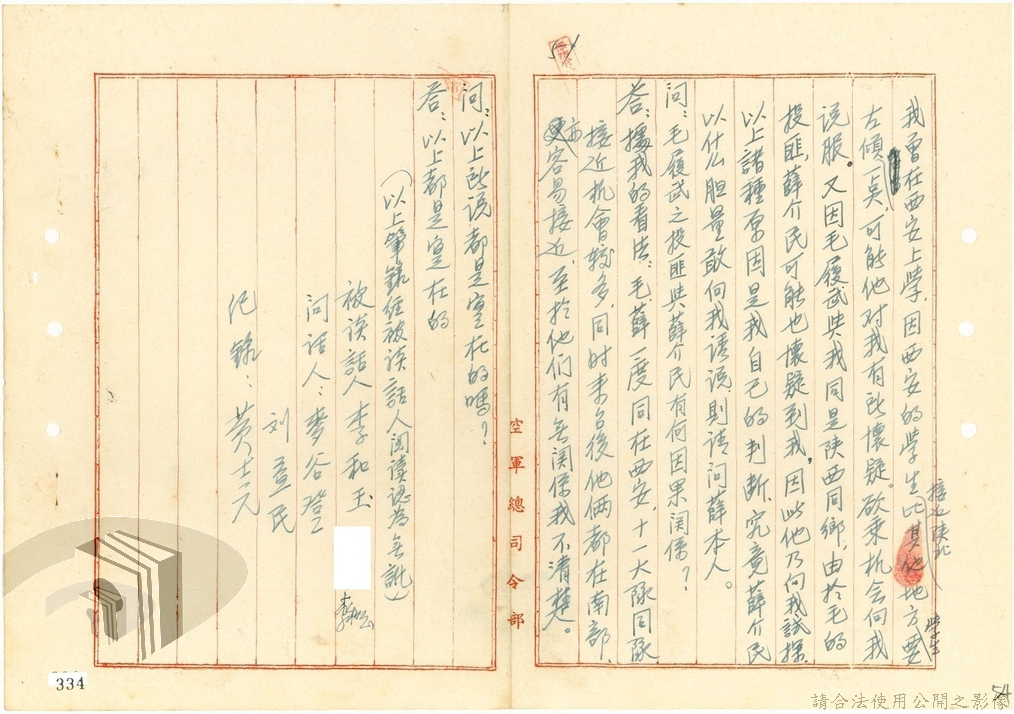 我曾在西安上學，因西安的學生比其他地方要
接近陝北
學生
左傾一点，可能他对我有所懷疑。欲乘机会向我
说服。又因毛履武與我同是陝西同鄉，由於毛的
投匪，薛介民可能也懷疑到我，因此他乃向我試探
以上諸種原因是我自己的判断，究竟薛介民
以什么胆量敢向我诱说，則请问薛本人。
问：毛履武之投匪與薛介民有何因果関係？
答：據我的看法：毛、薛一度同在西安，十一大隊同隊
接近机會較多，同时来台後他俩都在南部，
亦容易接近，至於他们有無関係我不清楚。
空軍總司令部
问：以上所说都是实在的嗎？
答：以上都是实在的
（以上筆錄经被谈話人阅读認為無訛）
被谈話人 李和玉
问话人：麥谷登
刘益民
记錄：黄士元
334
54
請合法使用公開之影像